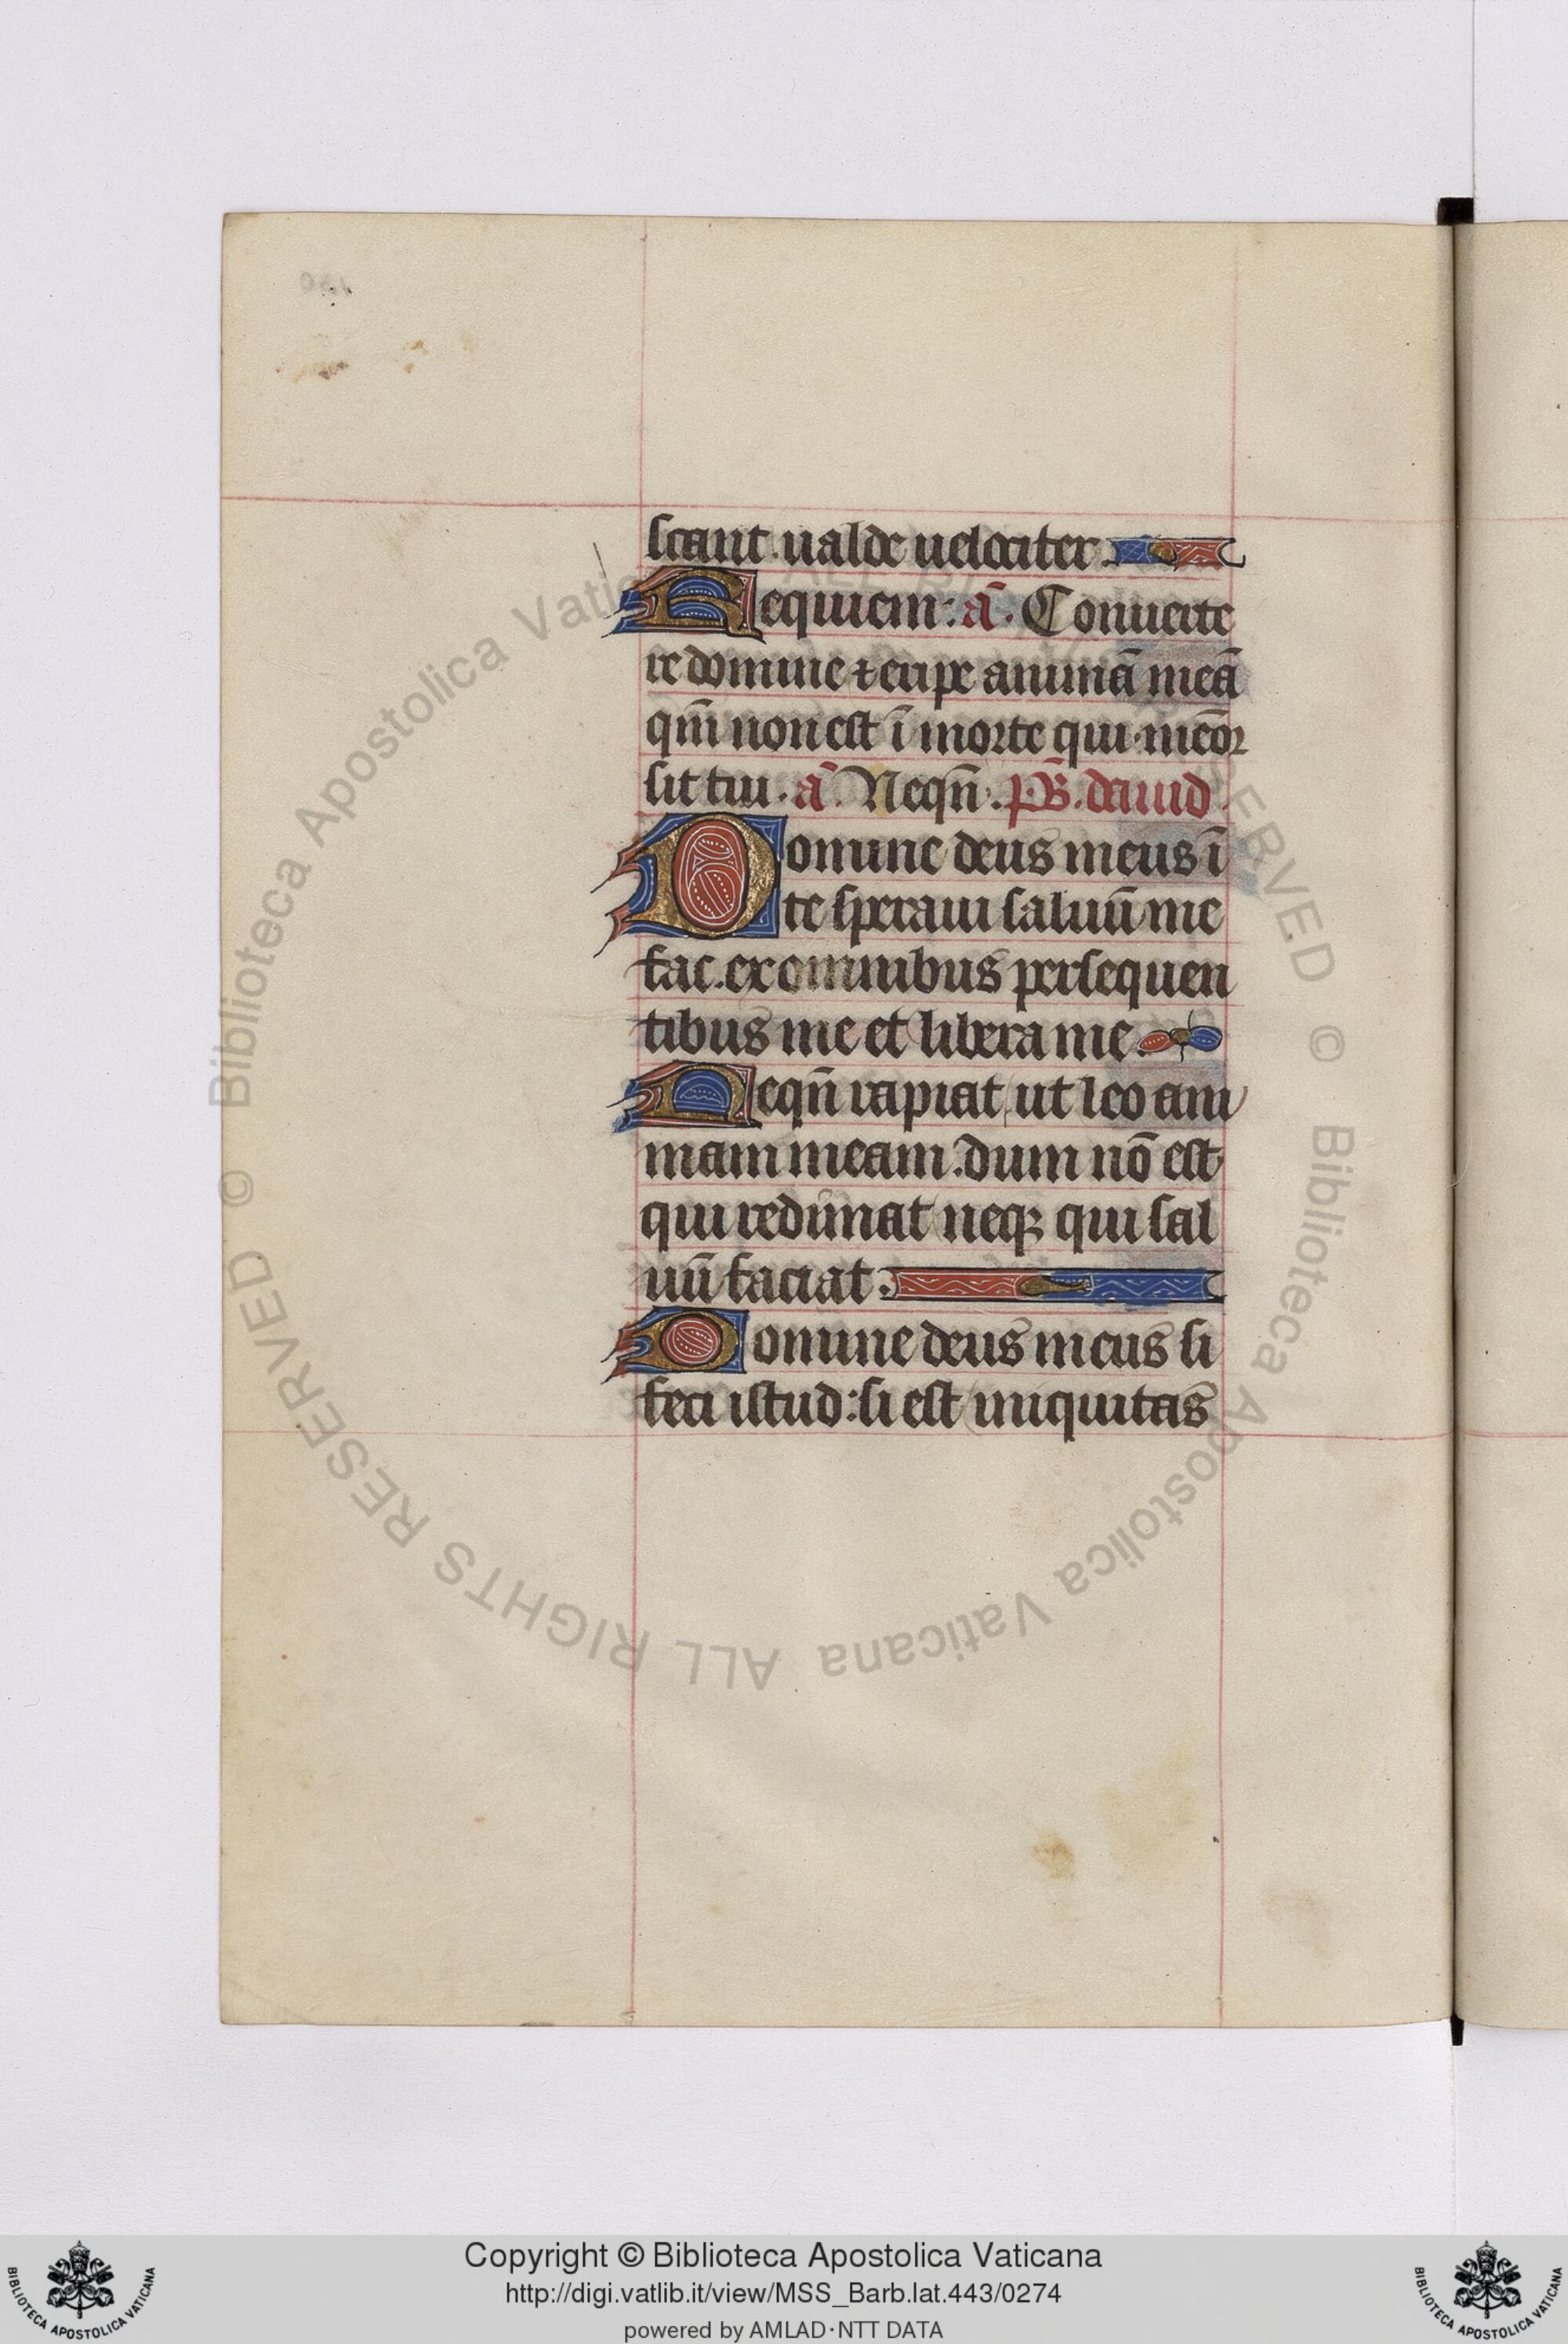 scant ualde uelociter.
Requiem: a᷃. Conuerte
re domine ⁊ eripe animā meā
qm̄ non est ī morte qui meōꝛ
sit tui. a᷃. Neqn̄. ps̄. dauid
Domine deus meus ī
te speraui saluū me
fac. ex omnibus persequen
tibus me et libera me.
Neqn̄ rapiat ut leo ani
mam meam. dum nō est
qui redimat neqꝫ qui sal
uū faciat.
Domine deus meus si
feci istud: si est iniquitas
© Biblioteca Apostolica Vaticana ALL RIGHTS RESERVED © Biblioteca Apostolica Vaticana ALL RIGHTS RESERVED
Copyright © Biblioteca Apostolica Vaticana
http://digi.vatlib.it/view/MSS_Barb.lat.443/0274
powered by AMLAD·NTT DATA
BIBLIOTECA APOSTOLICA VATICANA
BIBLIOTECA APOSTOLICA VATICANA